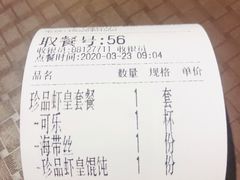 取餐号:56
收银号:88127711 收银员
点餐时间:2020-03-23 09:04
品名 数量 规格 单价
珍品虾皇套餐 1 套
-可乐 1 杯
-海带丝 1 份
-珍品虾皇馄饨 1 份